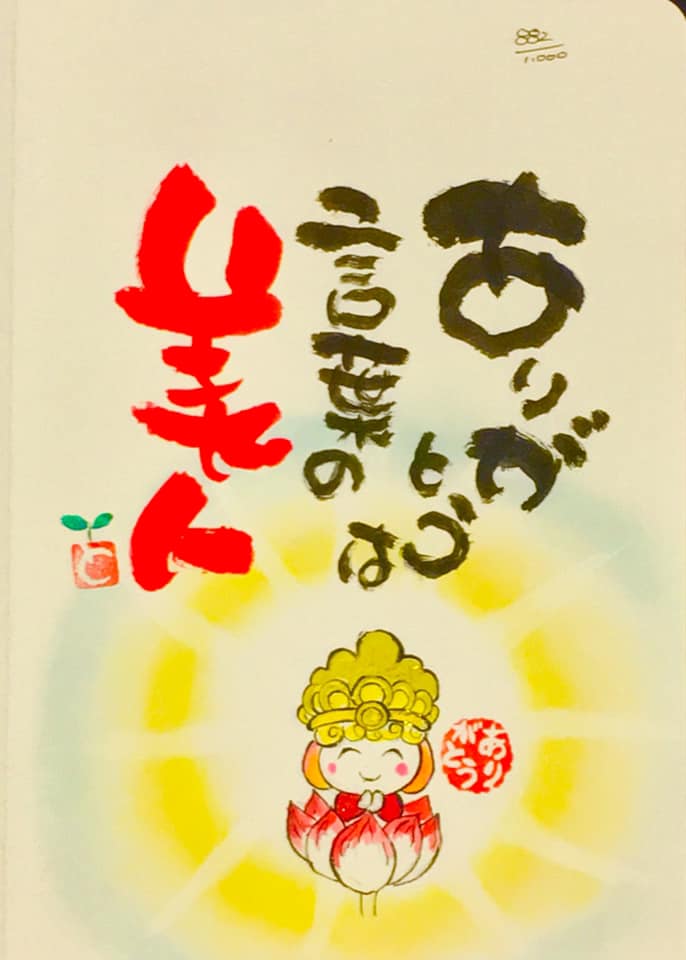 882
1.000
ありがとうは
言葉の
美人
あり
がとう